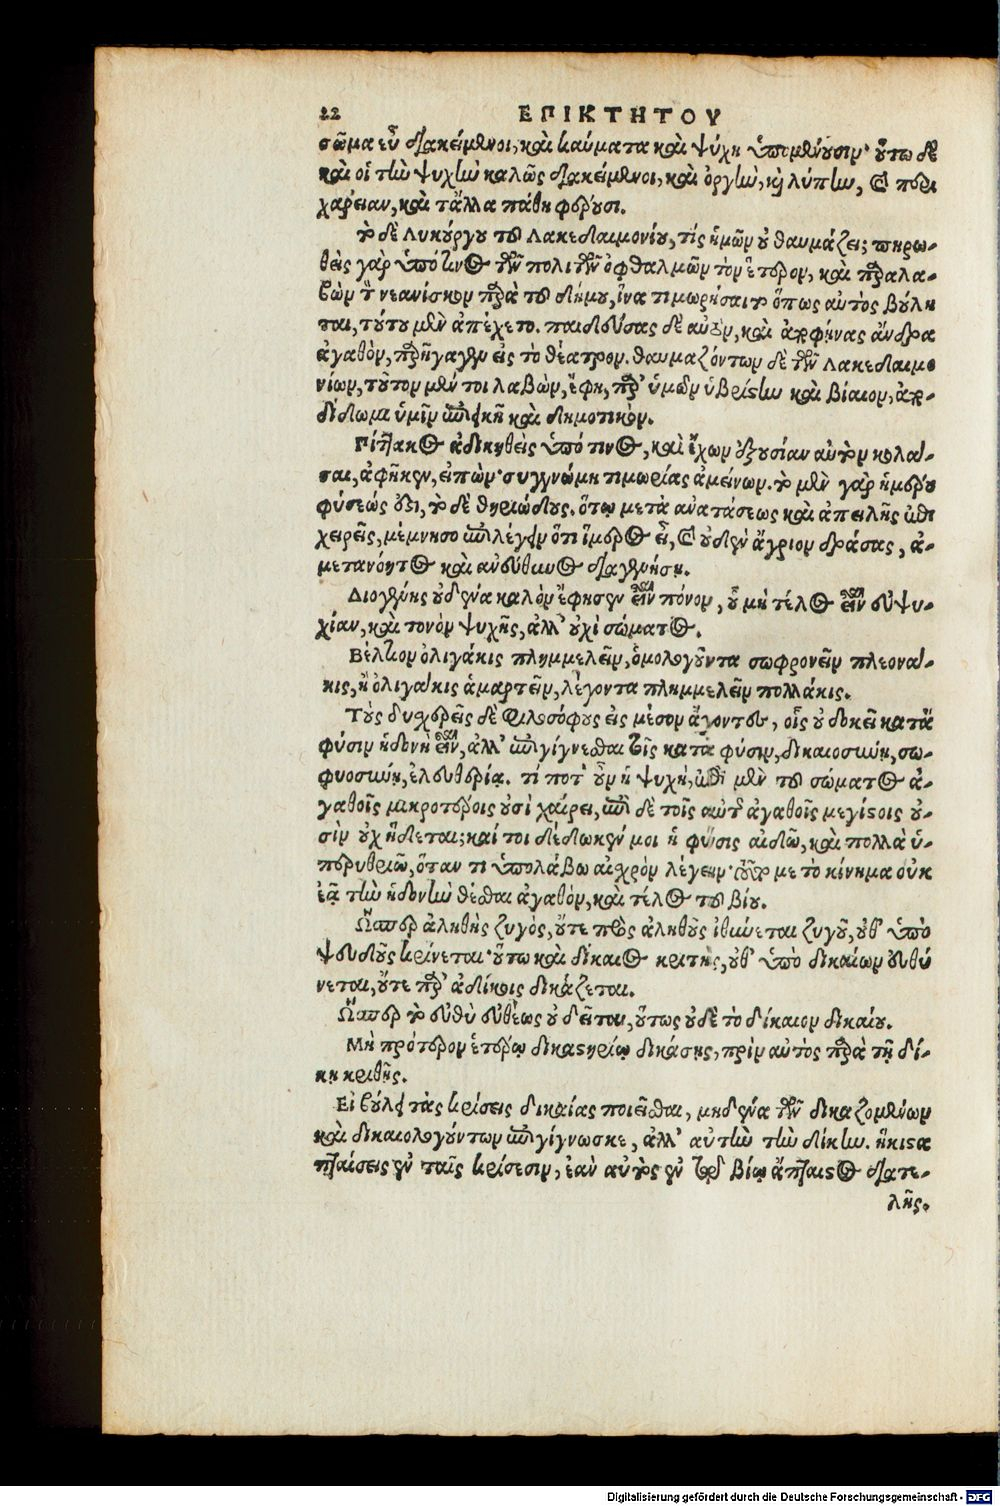 22 ΕΠΙΚΤΗΤΟΥ
σῶμα εὖ διακείμενοι, καὶ καύματα καὶ ψύχη ὑπομένουσιν· οὕτω δὲ
καὶ οἱ τὴν ψυχὴν καλῶς διακείμενοι, καὶ ὀργὴν, καὶ λύπην, καὶ περι
χάρειαν, καὶ τἄλλα πάθη φέρουσι.
τὸ δὲ Λυκούργου τοῦ Λακεδαιμονίου, τίς ἡμῶν οὐ θαυμάζει; πηρω-
θεὶς γὰρ ὑπό τινος τῶν πολιτῶν ὀφθαλμῶν τὸν ἕτερον, καὶ παραλα-
βὼν τὸν νεανίσκον παρὰ τοῦ δήμου, ἵνα τιμωρήσαιτο ὅπως αὐτὸς βούλη
ται, τούτου μὲν ἀπέχετο. παιδεύσας δὲ αὐτὸν, καὶ ἀποφήνας ἄνδρα
ἀγαθὸν, παρήγαγεν εἰς τὸ θέατρον. θαυμαζόντων δὲ τῶν Λακεδαιμο
νίων, τοῦτον μέν τοι λαβὼν, ἔφη, παρ' ὑμῶν ὑβριστὴν καὶ βίαιον, ἀπο-
δίδωμι ὑμῖν ἐπιεικῆ καὶ δημοτικόν.
Πίττακος ἀδικηθεὶς ὑπό τινος, καὶ ἔχων ἐξουσίαν αὐτὸν κολά-
σαι, ἀφῆκεν, εἰπών· συγγνώμη τιμωρίας ἀμείνων. τὸ μὲν γὰρ ἡμέρου
φύσεώς ἐστι, τὸ δὲ θηριώδους. ὅτῳ μετὰ ἀνατάσεως καὶ ἀπειλῆς ἐπι
χειρεῖς, μέμνησο ἐπιλέγειν ὅτι ἥμερος εἶ, καὶ οὐδὲν ἄγριον δράσας, ἀ-
μετανόητος καὶ ἀνεύθυνος διαγενήσῃ.
Διογένης οὐδένα καλὸν ἔφησεν εἶναι πόνον, οὗ μὴ τέλος εἶναι εὐψυ-
χίαν, καὶ τονὸν ψυχῆς, ἀλλ' οὐχὶ σώματος.
Βέλτιον ὀλιγάκις πλημμελεῖν, ὁμολογοῦντα σωφρονεῖν πλεονά-
κις, ἢ ὀλιγάκις ἁμαρτεῖν, λέγοντα πλημμελεῖν πολλάκις.
Τοὺς δυσχερεῖς δὲ φιλοσόφους εἰς μέσον ἄγοντες, οἷς οὐ δοκεῖ κατὰ
φύσιν ἡδονὴ εἶναι, ἀλλ' ἐπιγίγνεσθαι τοῖς κατὰ φύσιν, δικαιοσύνῃ, σω-
φροσύνῃ, ἐλευθερίᾳ. τί ποτ' οὖν ἡ ψυχὴ, ἐπὶ μὲν τοῦ σώματος ἀ-
γαθοῖς μικροτέροις οὖσι χαίρει, ἐπὶ δὲ τοῖς αὐτῆς ἀγαθοῖς μεγίστοις οὖ-
σιν οὐχ ἥδεται; καί τοι δέδωκέν μοι ἡ φύσις αἰδῶ, καὶ πολλὰ ὑ-
περυθριῶ, ὅταν τι ὑπολάβω αἰσχρὸν λέγειν· τοῦτό με τὸ κίνημα οὐκ
ἐᾷ τὴν ἡδονὴν θέσθαι ἀγαθὸν, καὶ τέλος τοῦ βίου.
Ὥσπερ ἀληθὴς ζυγὸς, οὔτε πρὸς ἀληθοῦς ἰθύνεται ζυγοῦ, οὔθ' ὑπὸ
ψευδοῦς κρίνεται· οὕτω καὶ δίκαιος κριτὴς, οὔθ' ὑπὸ δικαίων εὐθύ
νεται, οὔτε παρ' ἀδίκοις δικάζεται.
Ὥσπερ τὸ εὐθὺ εὐθέος οὐ δεῖται, οὕτως οὐδὲ τὸ δίκαιον δικαίου.
Μὴ πρότερον ἑτέρῳ δικαστηρίῳ δικάσῃς, πρὶν αὐτὸς παρὰ τῇ δί-
κῃ κριθῇς.
Εἰ βούλει τὰς κρίσεις δικαίας ποιεῖσθαι, μηδένα τῶν δικαζομένων
καὶ δικαιολογούντων ἐπιγίγνωσκε, ἀλλ' αὐτὴν τὴν δίκην. ἥκιστα
πταίσεις ἐν ταῖς κρίσεσιν, ἐὰν αὐτὸς ἐν τῷ βίῳ ἄπταιστος διατε-
λῇς.
Digitalisierung gefördert durch die Deutsche Forschungsgemeinschaft - DFG